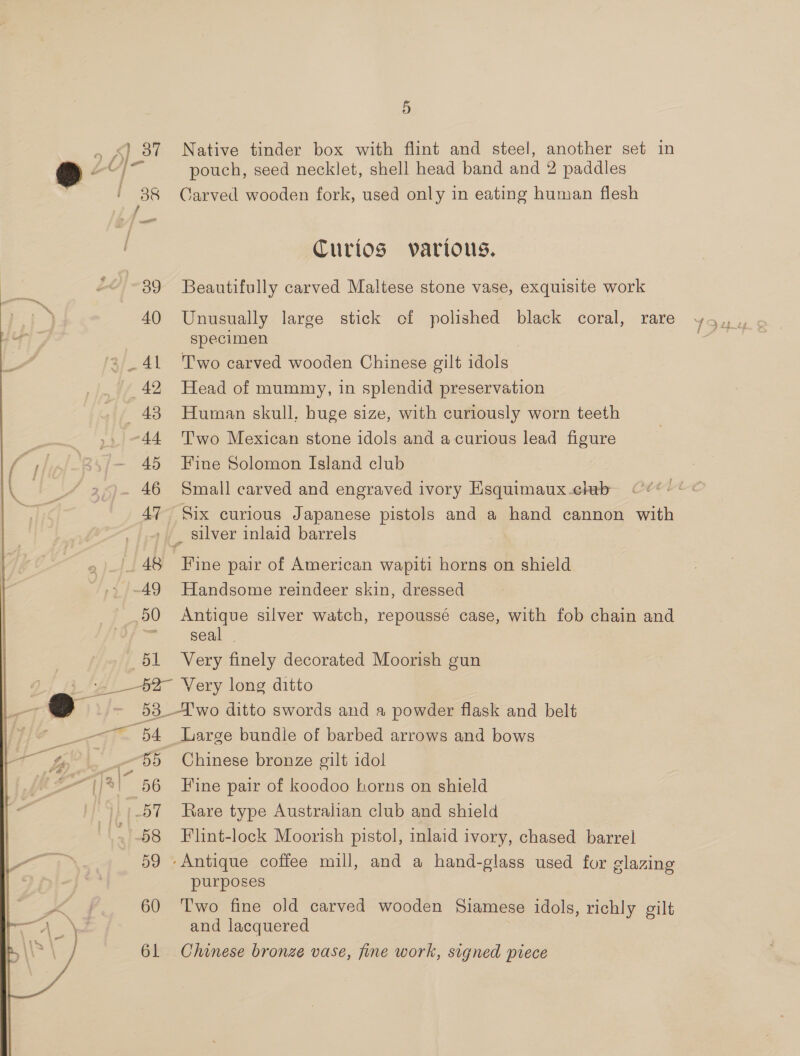 5
37 Native tinder box with flint and steel, another set in
pouch, seed necklet, shell head band and 2 paddles
38 Carved wooden fork, used only in eating human flesh
Curios various.
39 Beautifully carved Maltese stone vase, exquisite work
40 Unusually large stick of polished black coral, rare
specimen
41 Two carved wooden Chinese gilt idols
42 Head of mummy, in splendid preservation
43 Human skull, huge size, with curiously worn teeth
44 Two Mexican stone idols and a curious lead figure
45 Fine Solomon Island club
46 Small carved and engraved ivory Esquimaux club
47 Six curious Japanese pistols and a hand cannon with
silver inlaid barrels
48 Fine pair of American wapiti horns on shield
49 Handsome reindeer skin, dressed
50 Antique silver watch, repoussé case, with fob chain and
seal
51 Very finely decorated Moorish gun
52 Very long ditto
53 Two ditto swords and a powder flask and belt
54 Large bundle of barbed arrows and bows
55 Chinese bronze gilt idol
56 Fine pair of koodoo horns on shield
57 Rare type Australian club and shield
58 Flint-lock Moorish pistol, inlaid ivory, chased barrel
59 Antique coffee mill, and a hand-glass used for glazing
purposes
60 Two fine old carved wooden Siamese idols, richly gilt
and lacquered
61 Chinese bronze vase, fine work, signed piece